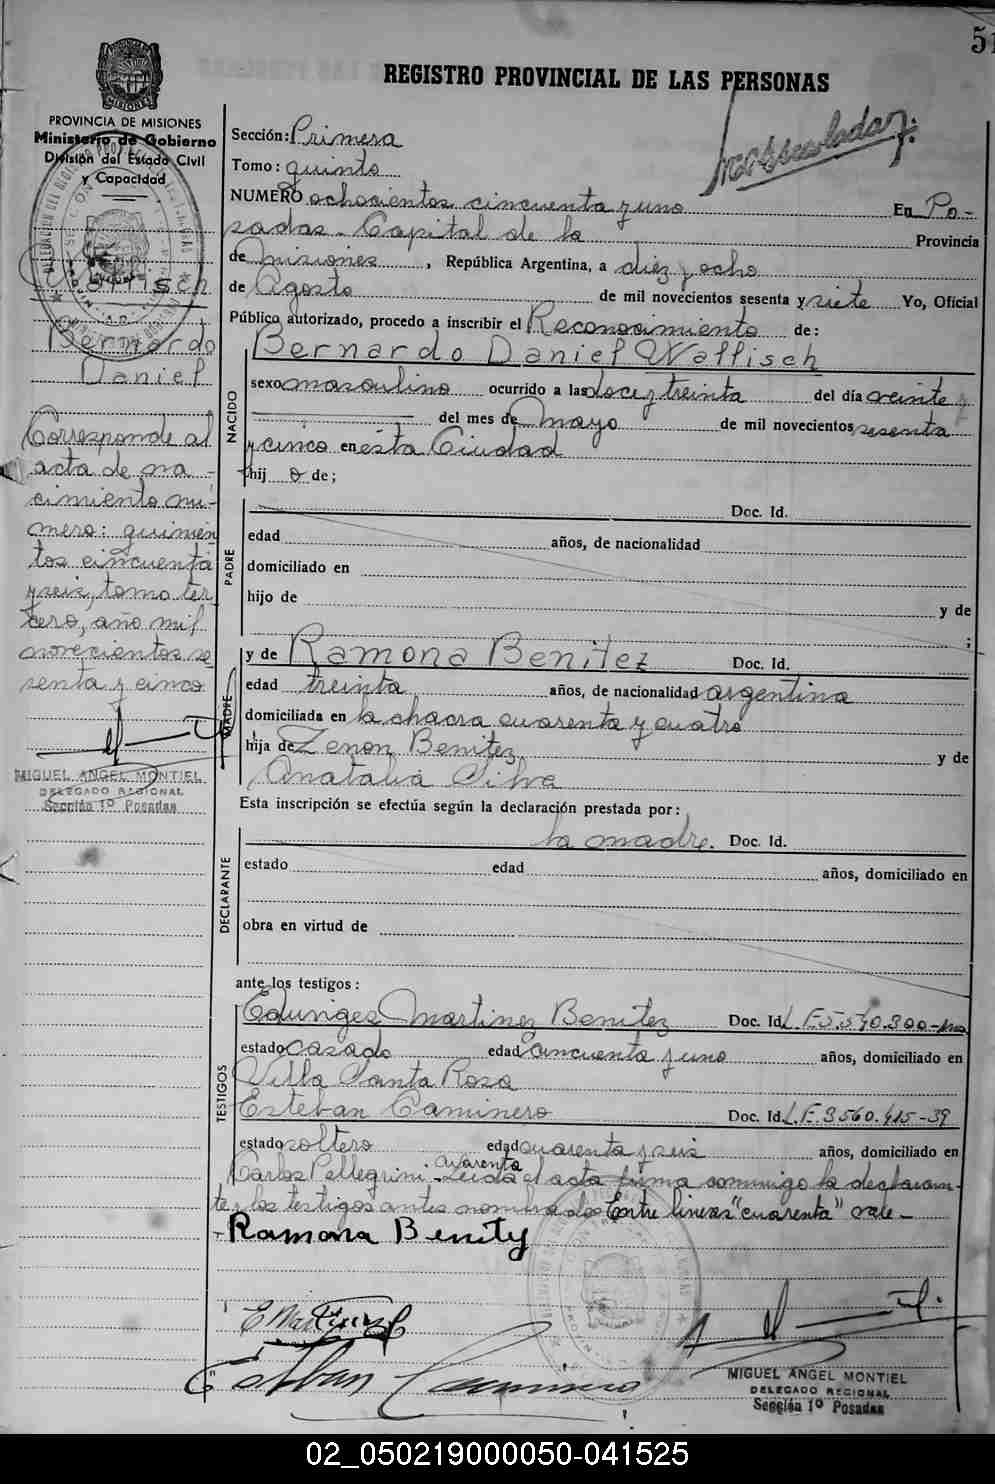 51
REGISTRO PROVINCIAL DE LAS PERSONAS
PROVINCIA DE MISIONES
Ministerio de Gobierno
División del Estado Civil
y Capacidad
Wallisch
Bernardo
Daniel
Corresponde al
acta de na-
cimiento nú-
mero: quinien
tos cincuenta
y seis, tomo ter
cero, año mil
novecientos se
senta y cinco
MIGUEL ANGEL MONTIEL
DELEGADO REGIONAL
Sección 1º Posadas
Sección: Primera
Tomo: quinto
NUMERO ochocientos cincuenta y uno En Po-
sadas - Capital de la Provincia
de Misiones, República Argentina, a diez y ocho
de Agosto de mil novecientos sesenta y siete Yo, Oficial
Público autorizado, procedo a inscribir el Reconocimiento de:
NACIDO
Bernardo Daniel Wallisch
sexo masculino ocurrido a las doce y treinta del día veinte y
del mes de Mayo de mil novecientos sesenta
y cinco en esta Ciudad
hij o de;
PADRE
Doc. Id.
edad años, de nacionalidad
domiciliado en
hijo de y de
;
MADRE
y de Ramona Benitez Doc. Id.
edad treinta años, de nacionalidad argentina
domiciliada en la chacra cuarenta y cuatro
hija de Zenon Benitez y de
Anatalia Silva
Esta inscripción se efectúa según la declaración prestada por:
DECLARANTE
la madre. Doc. Id.
estado edad años, domiciliado en
obra en virtud de
ante los testigos:
TESTIGOS
Eduviges Martinez Benitez Doc. Id. L.E 5.540.300-
estado casado edad cincuenta y uno años, domiciliado en
Villa Santa Rosa
Esteban Caminero Doc. Id. L.E. 3560.415-39
estado soltero edad cuarenta y seis años, domiciliado en
cuarenta
Carlos Pellegrini - Leída el acta firma conmigo la declaran-
te y los testigos antes nombrados Entre lineas "cuarenta" vale -
Ramona Benity
Esteban Caminero
MIGUEL ANGEL MONTIEL
DELEGADO REGIONAL
Sección 1º Posadas
02_050219000050-041525